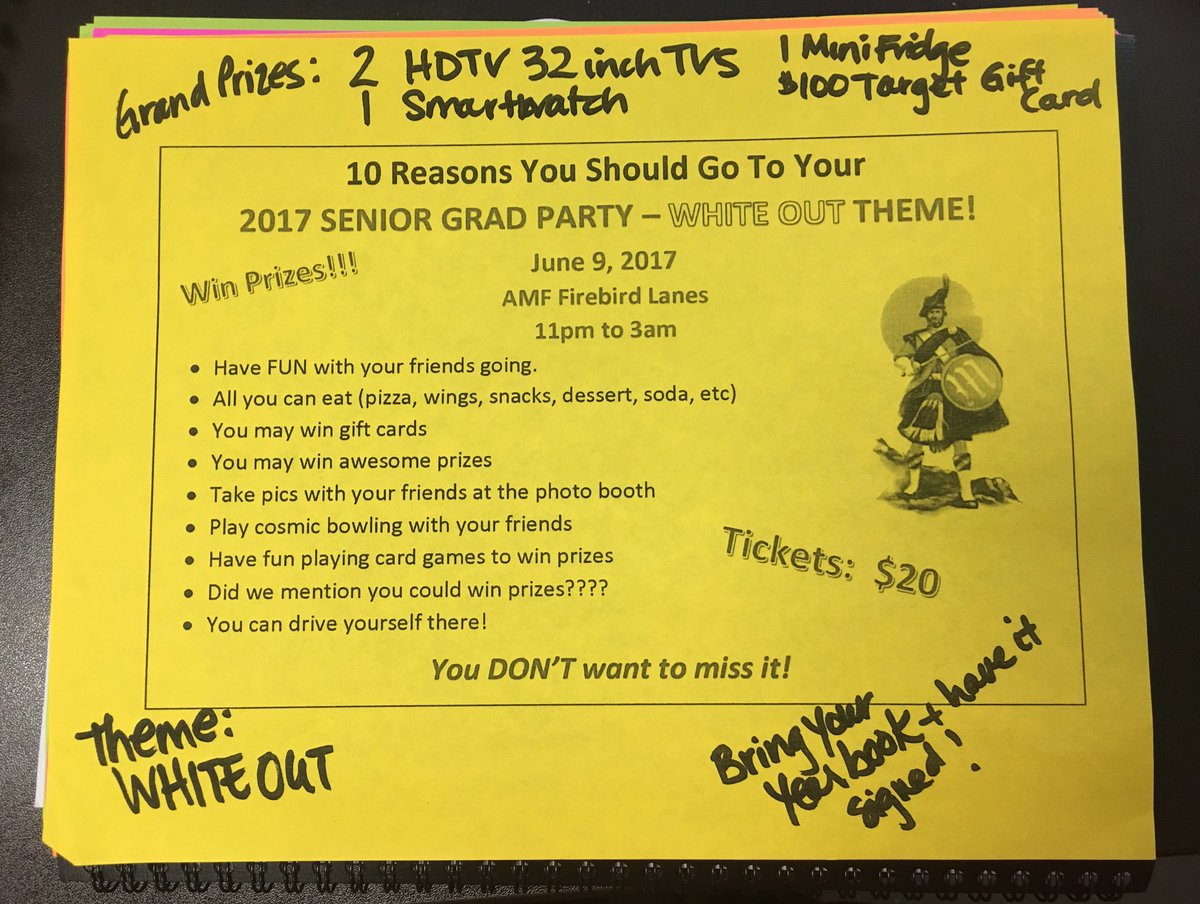 Grand Prizes: 2 HDTV 32 inch TVs 1 Mini Fridge
1 Smartwatch $100 Target Gift Card
10 Reasons You Should Go To Your
2017 SENIOR GRAD PARTY – WHITE OUT THEME!
Win Prizes!!!
June 9, 2017
AMF Firebird Lanes
11pm to 3am
• Have FUN with your friends going.
• All you can eat (pizza, wings, snacks, dessert, soda, etc)
• You may win gift cards
• You may win awesome prizes
• Take pics with your friends at the photo booth
• Play cosmic bowling with your friends
• Have fun playing card games to win prizes
• Did we mention you could win prizes????
• You can drive yourself there!
Tickets: $20
You DON'T want to miss it!
Theme:
WHITE OUT
Bring your
Yearbook + have it
signed!